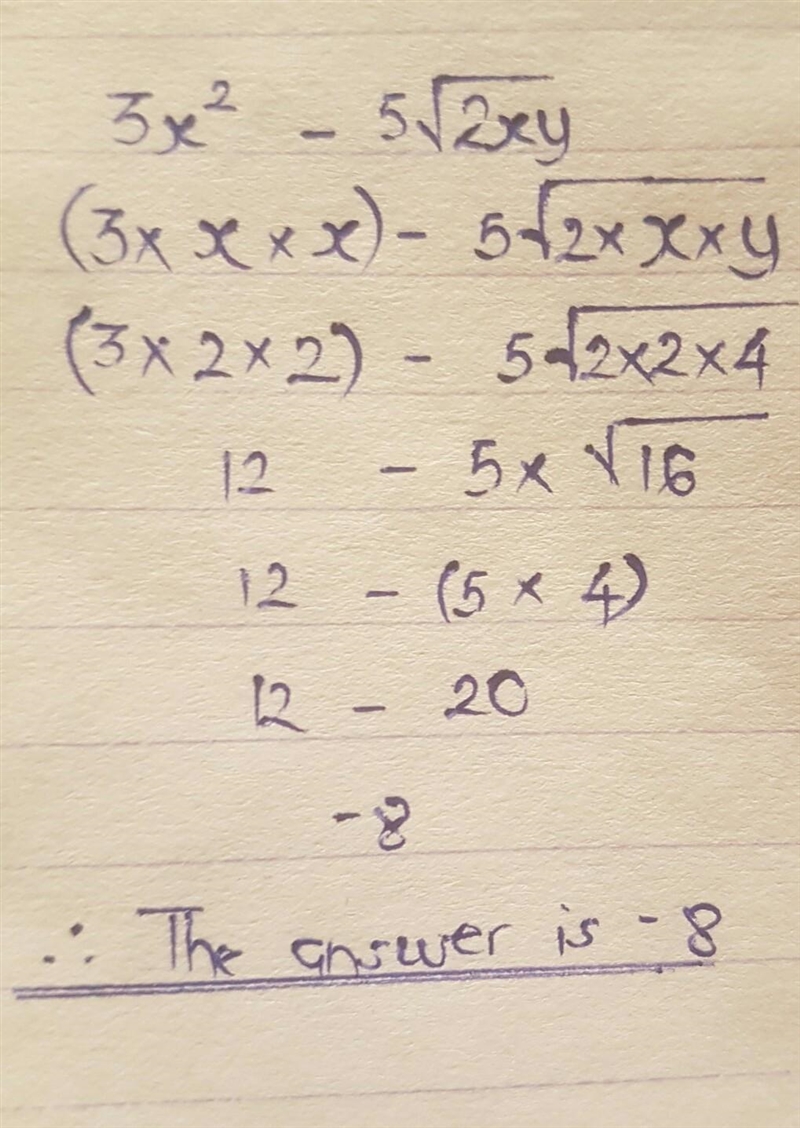 3x² - 5√2xy
(3× x × x) - 5√2× x × y
(3 × 2 × 2) - 5√2×2×4
12 - 5× √16
12 - (5 × 4)
12 - 20
-8
∴ The answer is -8